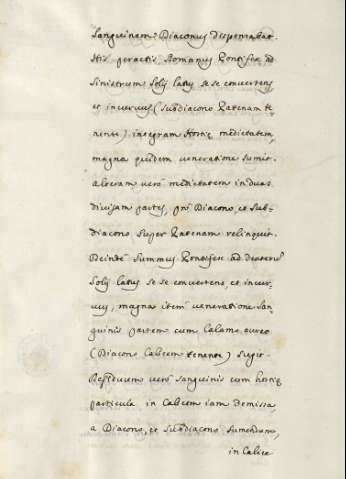 Sanguinem Diaconus dispensabat.
His peractis, Romanus Pontifex ad
sinistrum Solij latus se se convertens,
et incurvus (Subdiacono Patenam te-
nente) integram Hostiæ medietatem,
magna quidem veneratione sumit.
alteram verò medietatem in duas
divisam partes, pro Diacono, et Sub-
diacono super Patenam relinquit.
Deinde Summus Pontifex ad dexterum
Solij latus se se convertens, et incur-
vus, magna item veneratione San-
guinis partem cum Calamo aureo
(Diacono Calicem tenente) sugit.
Residuum verò sanguinis cum hostiæ
particula in Calicem iam demissa,
a Diacono, et Subdiacono sumendum,
in Calice